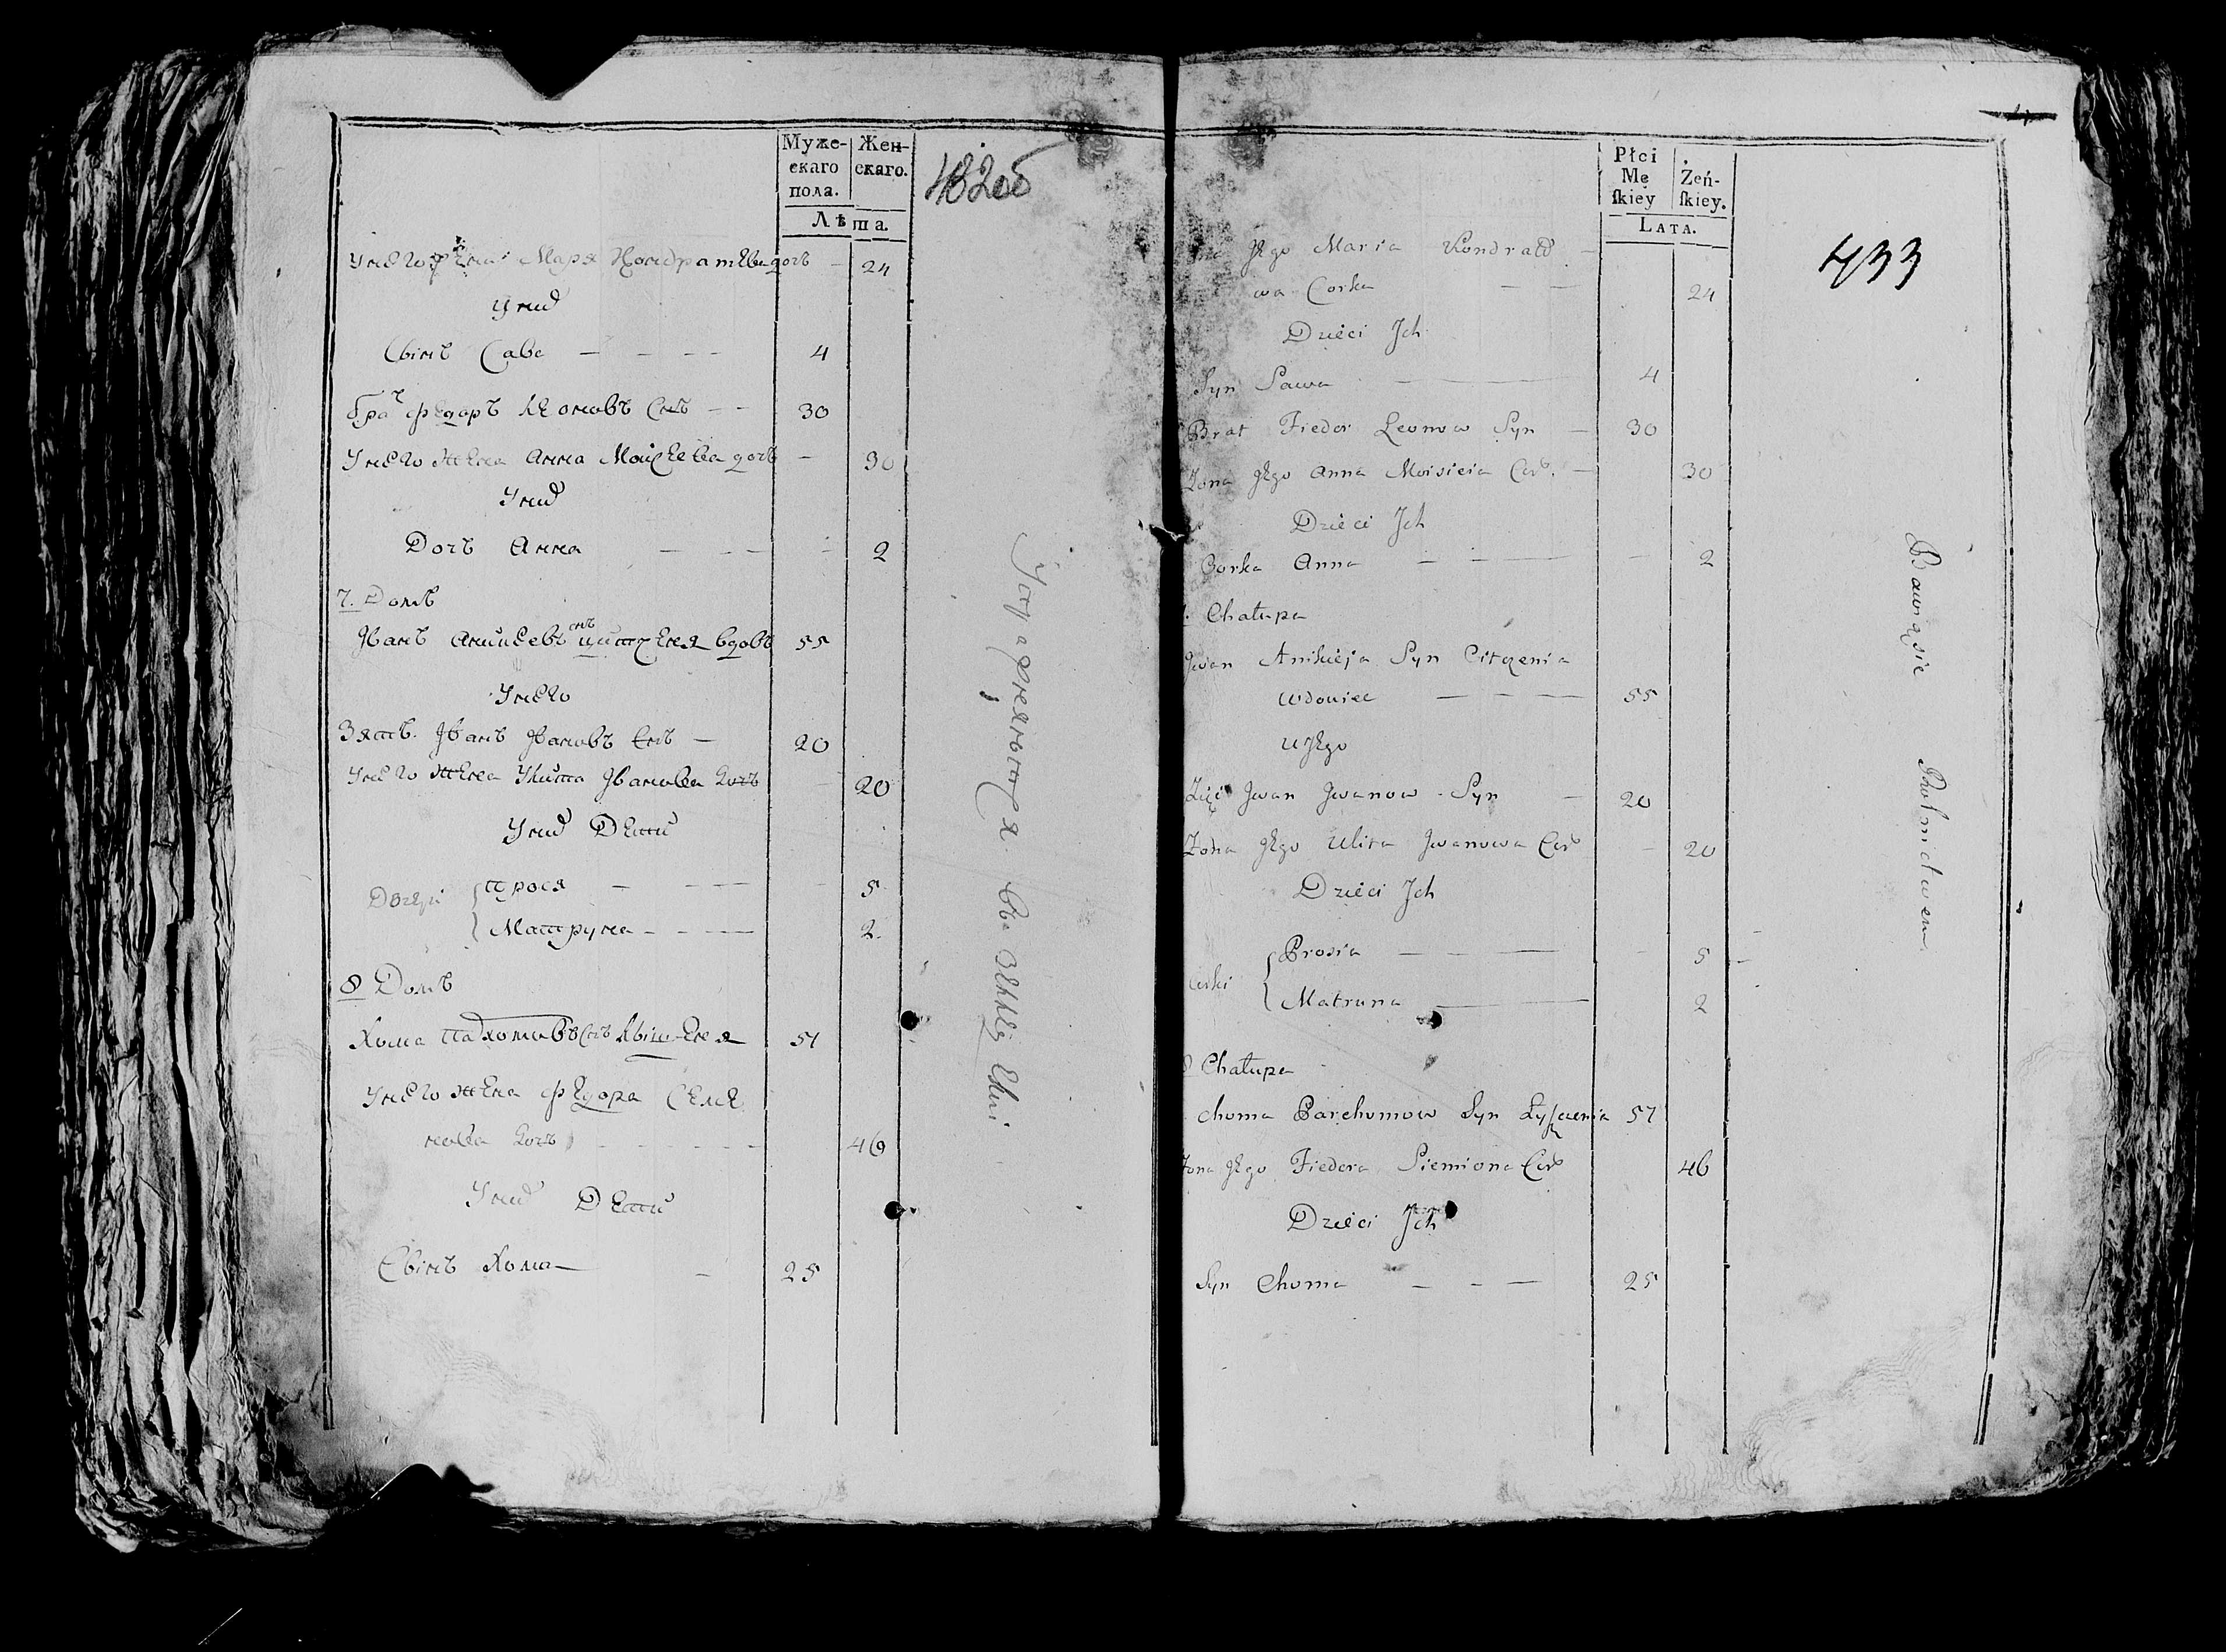 Муже-
скаго
пола.
Жен-
скаго.
Лѣта.
432об
Унего жена Маря Кондратева дочь — 24
Уних
Сынъ Сава — — — — 4
братъ Федоръ Леоновъ снъ — — 30
Унего жена Анна Моисеева дочь — 30
Уних
Дочъ Анна — — — — 2
7. Домъ
Иванъ Аникеевъ снъ Цитченя вдовъ 55
Унего
Зять Иванъ Ивановъ снъ — 20
Унего жена Улита Иванова дочъ 20
Уних Дети
Дочери Прося — — — — 5
Матруна — — — — 2
8 Домъ
Хома Пархомовъ снъ Лыщеня 57
Унего жена Федора Семе
нова дочъ — — — — 46
Уних Дети
Сынъ Хома — — 25
Płci
Mę
ſkiey
Żeń-
ſkiey.
Lata.
433
Jego Maria Kondrato
wa Corka — — 24
Dzieci Jch
Syn Sawa — 4
Brat Fiedor Leonow Syn — 30
Żona Jego Anna Moisieia Cor. — 30
Dzieci Jch
Corka Anna — — — — 2
Chałupa
Jwan Anikieja Syn Citczenia
Wdowiec — — — 55
U Jego
Zięć Jwan Jwanow Syn — 20
Żona Jego Ulita Jwanowa Cor — 20
Dzieci Jch
Corki Prosia — — — — 5
Matruna — 2
8 Chałupa
Choma Parchomow Syn Łyszczenia 57
Żona Jego Fiedora Siemiona Cor 46
Dzieci Jch
Syn Choma — — — 25
Bawiąsie Rolnictwem